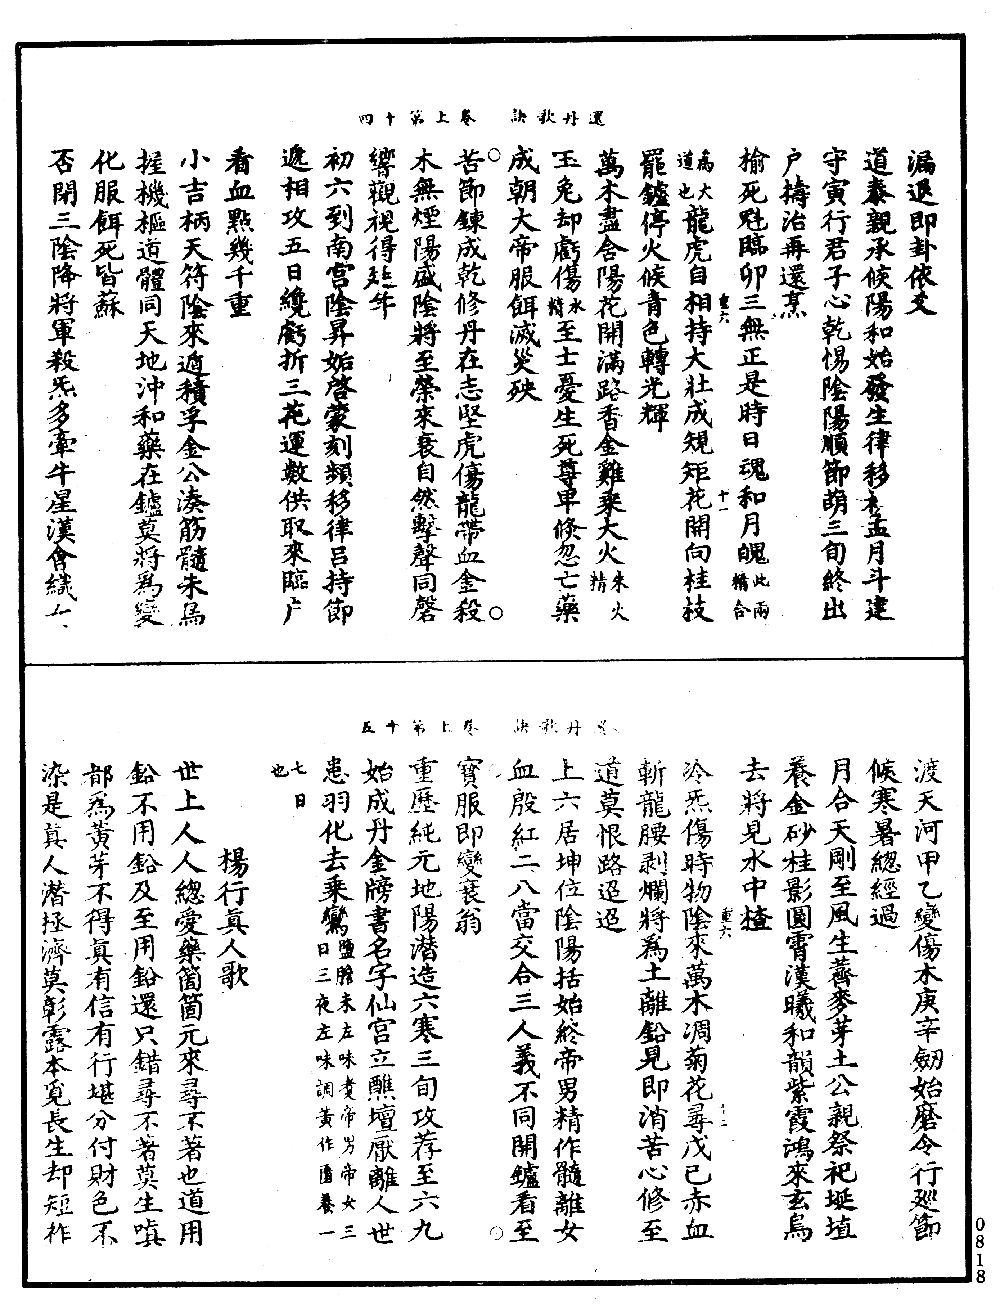 還丹歌訣 卷上第十四
漏退即卦依爻
道泰親承候陽和始發生律移於孟月斗建
守寅行君子心乾惕陰陽順節萌三旬終出
戶擣治再還烹
榆死魁臨卯三無正是時日魂和月魄此兩情合
為大道也龍虎自相持大壯成規矩花開向桂枝
重六
十一
罷鑪停火候青色轉光輝
萬木盡含陽花開滿路香金雞乘大火朱火精
玉兔却虧傷水精至士憂生死尊卑倏忽亡藥
成朝大帝服餌滅災殃
苦節鍊成乾修丹在志堅虎傷龍帶血金殺
木無煙陽盛陰將至榮來衰自然擊聲同磬
響觀視得延年
初六到南宮陰昇姤啓蒙刻頻移律呂持節
遞相攻五日纔虧折三花運數供取來臨户
看血點幾千重
小吉柄天符陰來遁積孚金公湊筋髓朱烏
握機樞道體同天地沖和藥在鑪莫將為變
化服餌死皆蘇
否閉三陰降將軍殺炁多牽牛星漢會織女
還丹歌訣 卷上第十五
渡天河甲乙變傷木庚辛劒始磨令行巡節
候寒暑總經過
月合天剛至風生蕎麥芽土公親祭祀埏埴
養金砂桂影圓霄漢曦和韻紫霞鴻來玄鳥
去將見水中楂
泠炁傷時物陰來萬木凋菊花尋戊己赤血
重六
十二
斬龍腰剥爛將為土離鉛見即消苦心修至
道莫恨路迢迢
上六居坤位陰陽括始終帝男精作髓離女
血殷紅二八當交合三人義不同開鑪看至
寶服即變衰翁
重歷純元地陽潛造六寒三旬攻荐至六九
始成丹金牓書名字仙宮立醮壇厭離人世
患羽化去乘鸞鹽膽末左味煑帝男帝女三日三夜左味調黃作匱養一
七日也
楊行真人歌
世上人人總愛藥箇箇元來尋不著也道用
鉛不用鉛及至用鉛還只錯尋不著莫生嗔
都為黃芽不得真有信有行堪分付財色不
染是真人潛拯濟莫彰露本覓長生却短祚
0818